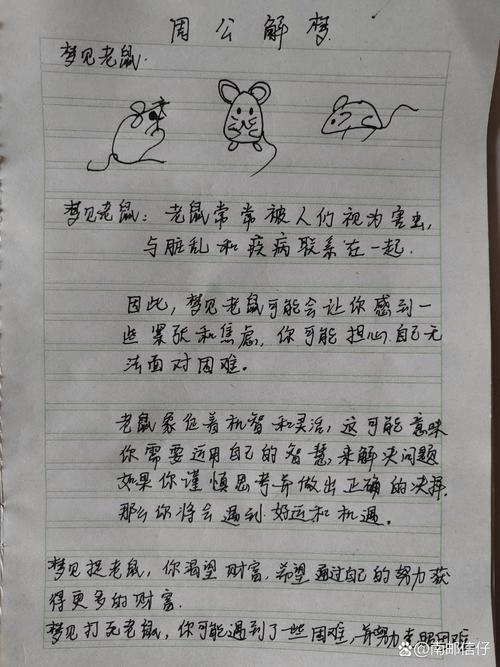 周公解梦
梦见老鼠.
梦见老鼠：老鼠常常被人们视为害虫,
与脏乱和疾病联系在一起.
因此，梦见老鼠可能会让你感到一
些紧张和焦虑，你可能担心自己无
法面对困难。
老鼠象征着机智和灵活，这可能意味
你需要运用自己的智慧，来解决问题
如果你谨慎思考并做出正确的决择,
那么你将会遇到好运和机遇。
梦见捉老鼠，你渴望财富，希望通过自己的努力获
得更多的财富.
梦见打死老鼠，你可能遇到了一些困难，并努力克服困难
百家号/南邮信仔